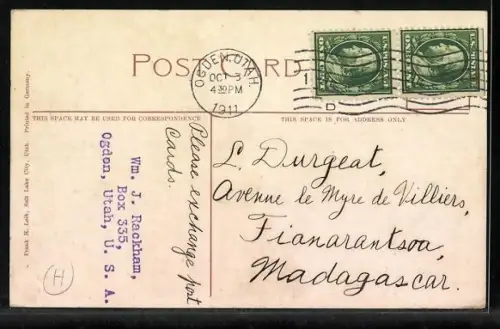 POST CARD
OGDEN, UTAH
OCT 3
4 30 PM
1911
D
THIS SPACE MAY BE USED FOR CORRESPONDENCE
THIS SPACE IS FOR ADDRESS ONLY
L. Durgeat,
Avenue le Myre de Villiers,
Fianarantsoa,
Madagascar.
Please exchange post
Cards.
Wm. J. Rackham,
Box 335,
Ogden, Utah, U. S. A.
Printed in Germany.
Salt Lake City, Utah.
H